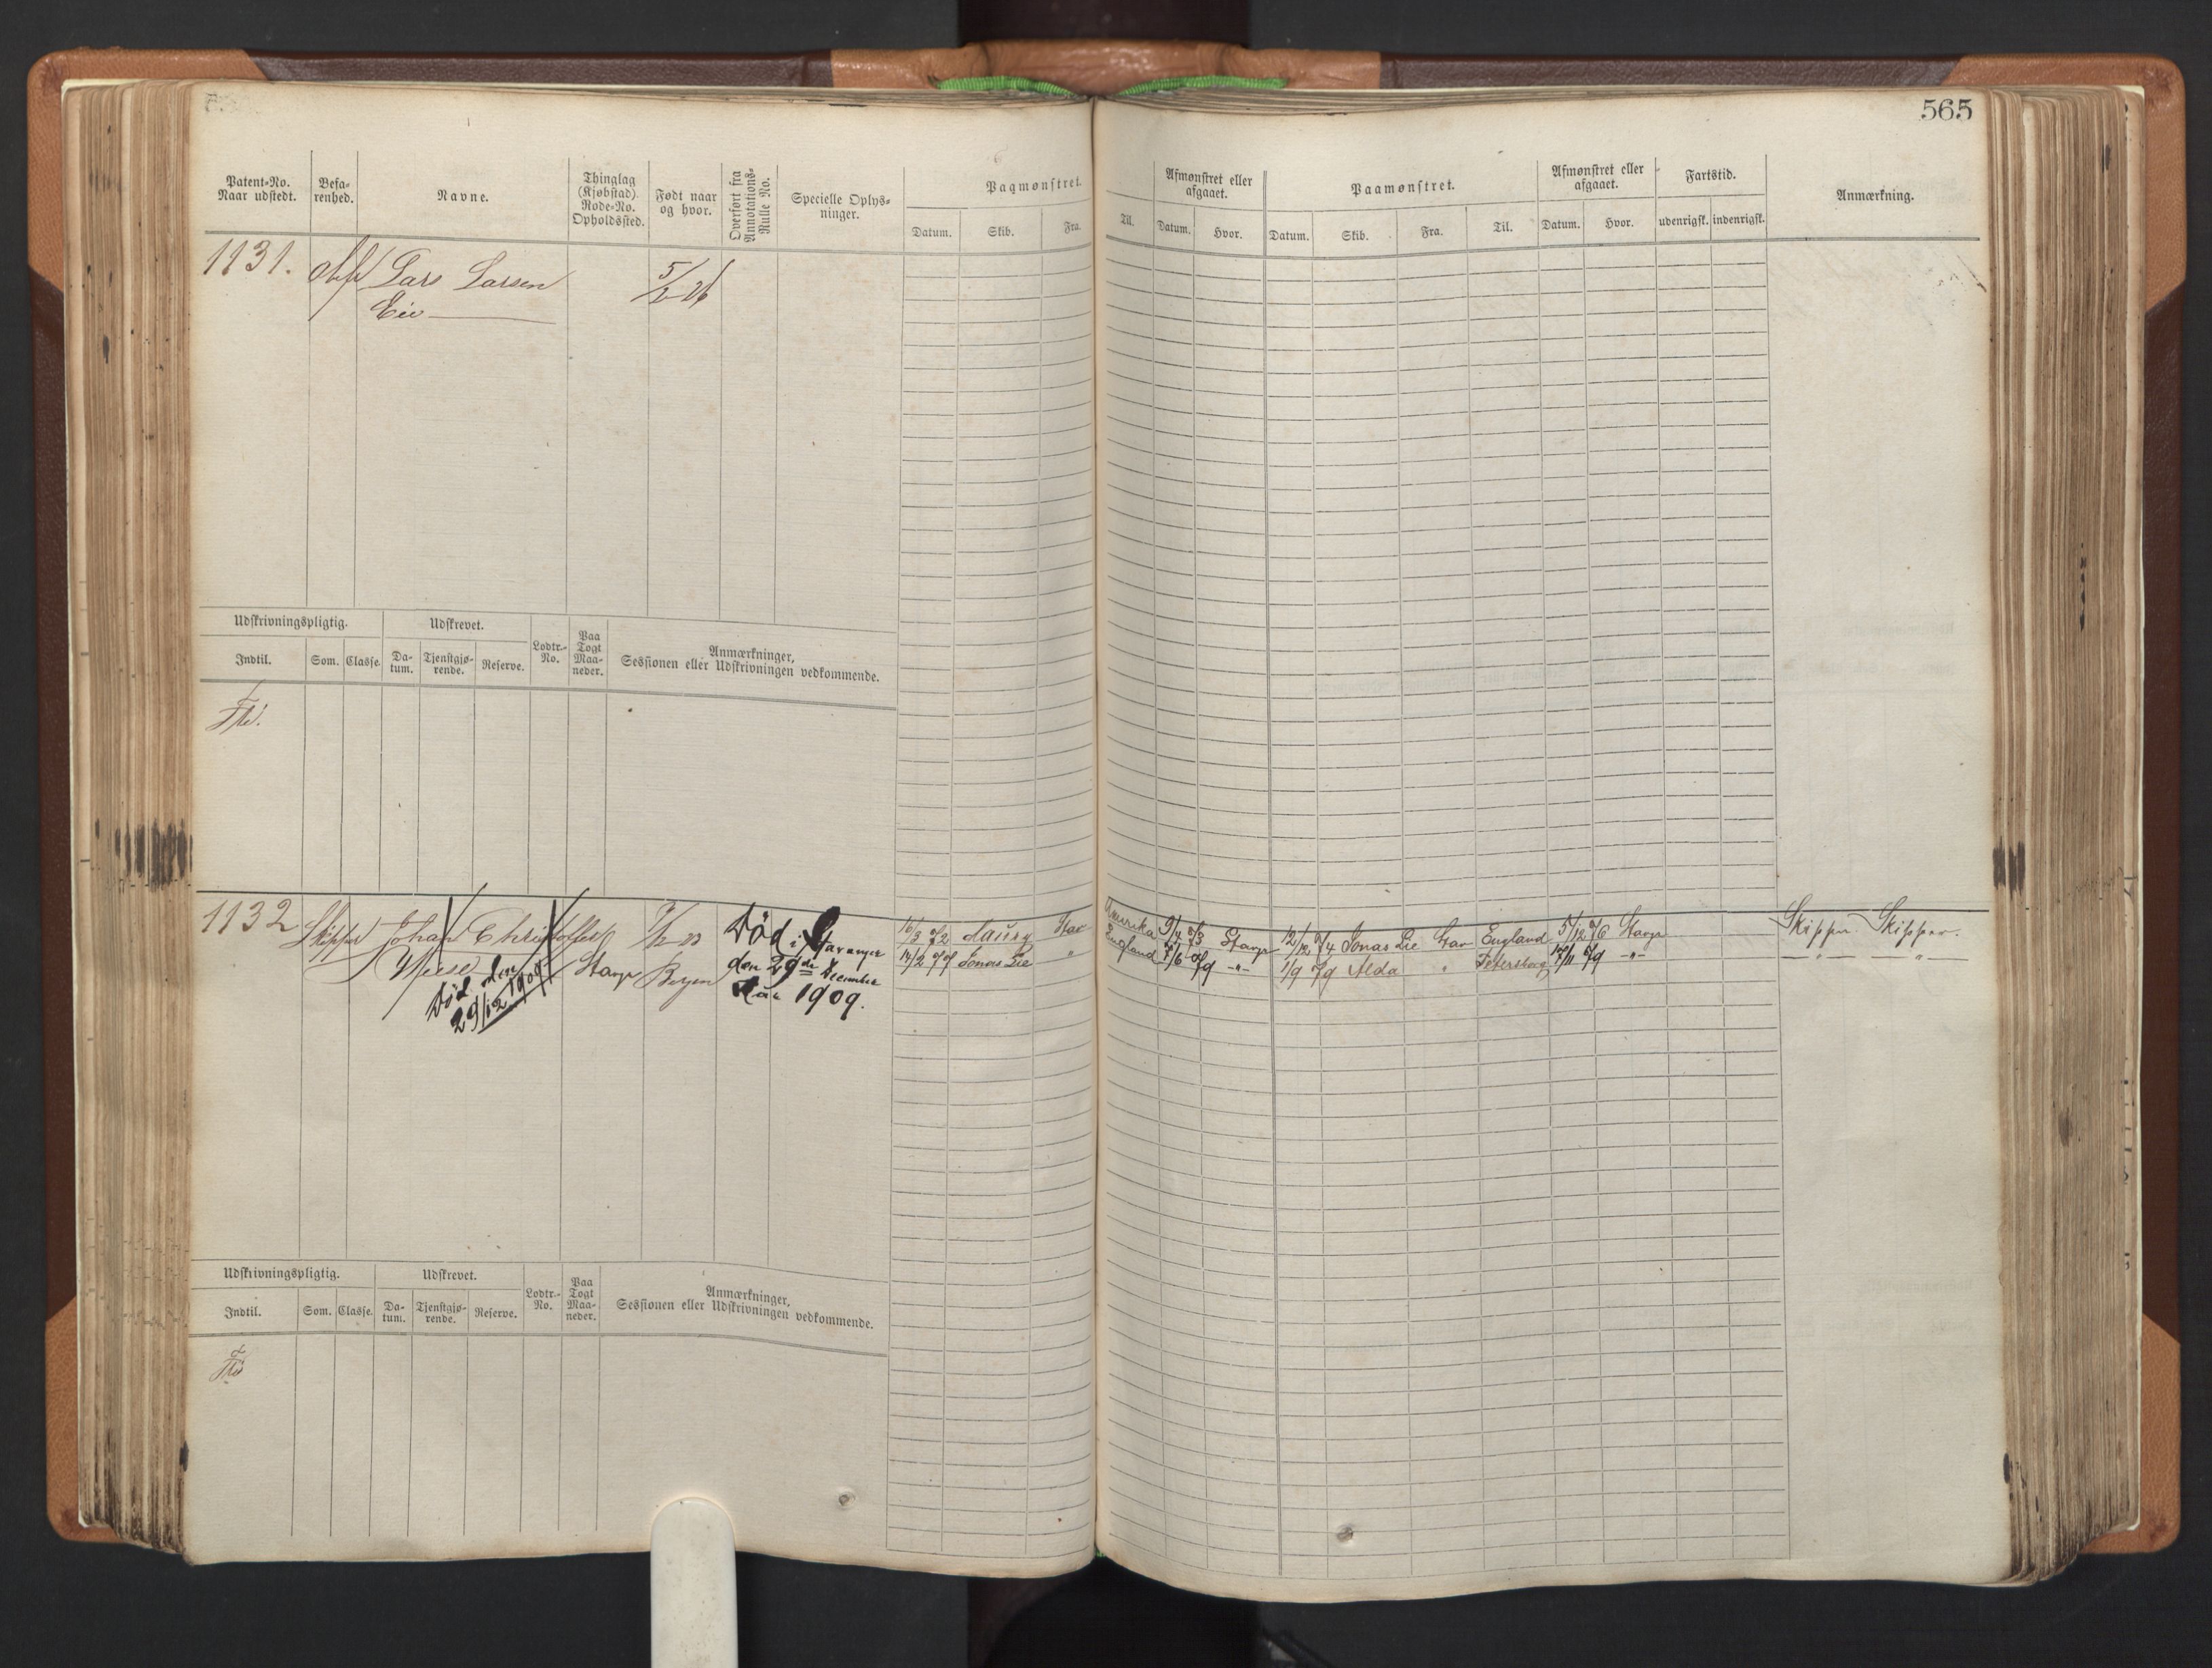 565
Patent-No. Naar udstedt. Befarenhed. Navne. Thinglag (Kjøbstad). Rode-No. Opholdssted. Født naar og hvor. Overført fra Annotations-Rulle No. Specielle Oplysninger. Paamønstret. Afmønstret eller afgaaet. Paamønstret. Afmønstret eller afgaaet. Fartstid. Anmærkning.
Datum. Skib. Fra. Til. Datum. Hvor. Datum. Skib. Fra. Til. Datum. Hvor. udenrigsk. indenrigsk.
1131. Lars Larsen 5/2 26
Eie
Udskrivningspligtig. Udskrevet. Lodtr.-No. Paa Togt Maaneder. Anmærkninger, Sessionen eller Udskrivningen vedkommende.
Indtil. Som. Classe. Datum. Tjenstgjørende. Reserve.
1132 Skipper Johan Christoffer Død i Stavanger 16/3 72 Stav Amerika 9/4 73 Stavgr 12/12 74 Jonas Lie Stav England 5/12 76 Stavgr Skipper Skipper.
Stavgr Bergen den 29de December 14/2 77 Jonas Lie " England 7/6 79 -"- 1/9 79 Alda " Petersborg 17/11 79 -"- -"- -"-
Aar 1909.
Død den
29/12 1909
Udskrivningspligtig. Udskrevet. Lodtr.-No. Paa Togt Maaneder. Anmærkninger, Sessionen eller Udskrivningen vedkommende.
Indtil. Som. Classe. Datum. Tjenstgjørende. Reserve.